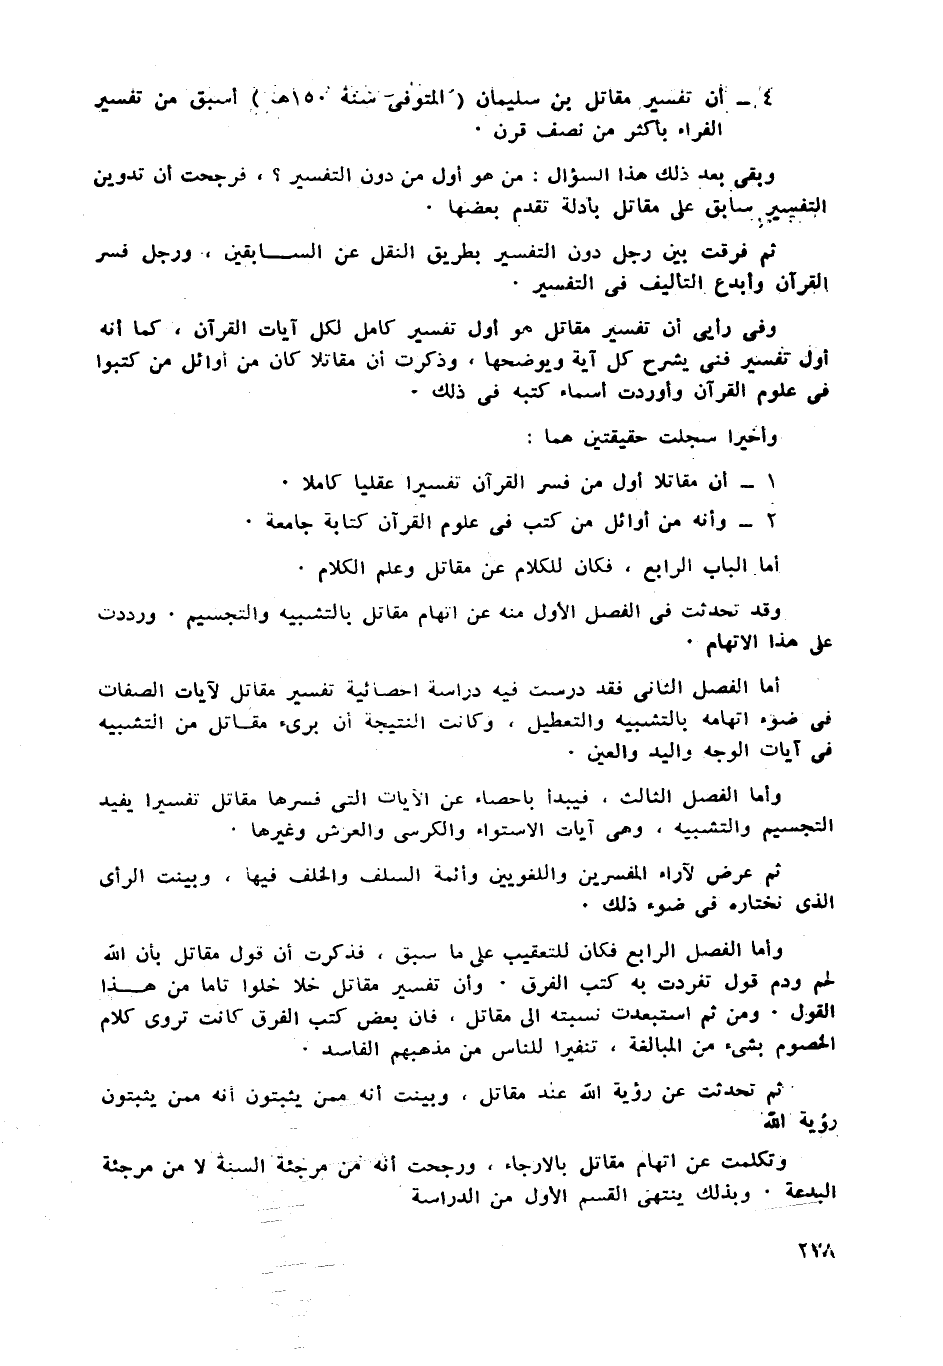 ٤ ـ أن تفسير مقاتل بن سليمان ( المتوفى سنة ١٥٠هـ ) أسبق من تفسير
الفراء بأكثر من نصف قرن ٠
وبقى بعد ذلك هذا السؤال : من هو أول من دون التفسير ؟ ، فرجحت أن تدوين
التفسير سابق على مقاتل بأدلة تقدم بعضها ٠
ثم فرقت بين رجل دون التفسير بطريق النقل عن الســـابقين ، ورجل فسر
القرآن وأبدع التأليف فى التفسير ٠
وفى رأيى أن تفسير مقاتل هو أول تفسير كامل لكل آيات القرآن ، كما أنه
أول تفسير فنى يشرح كل آية ويوضحها ، وذكرت أن مقاتلا كان من أوائل من كتبوا
فى علوم القرآن وأوردت أسماء كتبه فى ذلك ٠
وأخيرا سجلت حقيقتين هما :
١ ـ أن مقاتلا أول من فسر القرآن تفسيرا عقليا كاملا ٠
٢ ـ وأنه من أوائل من كتب فى علوم القرآن كتابة جامعة ٠
أما الباب الرابع ، فكان للكلام عن مقاتل وعلم الكلام ٠
وقد تحدثت فى الفصل الأول منه عن اتهام مقاتل بالتشبيه والتجسيم ٠ ورددت
على هذا الاتهام ٠
أما الفصل الثانى فقد درست فيه دراسة احصائية تفسير مقاتل لآيات الصفات
فى ضوء اتهامه بالتشبيه والتعطيل ، وكانت النتيجة أن برىء مقــاتل من التشبيه
فى آيات الوجه واليد والعين ٠
وأما الفصل الثالث ، فيبدأ باحصاء عن الآيات التى فسرها مقاتل تفسيرا يفيد
التجسيم والتشبيه ، وهى آيات الاستواء والكرسى والعرش وغيرها ٠
ثم عرض لآراء المفسرين واللغويين وأئمة السلف والخلف فيها ، وبينت الرأى
الذى نختاره فى ضوء ذلك ٠
وأما الفصل الرابع فكان للتعقيب على ما سبق ، فذكرت أن قول مقاتل بأن الله
لحم ودم قول تفردت به كتب الفرق ٠ وأن تفسير مقاتل خلا خلوا تاما من هـــذا
القول ٠ ومن ثم استبعدت نسبته الى مقاتل ، فان بعض كتب الفرق كانت تروى كلام
الخصوم بشىء من المبالغة ، تنفيرا للناس من مذهبهم الفاسد ٠
ثم تحدثت عن رؤية الله عند مقاتل ، وبينت أنه ممن يثبتون أنه ممن يثبتون
رؤية الله
وتكلمت عن اتهام مقاتل بالارجاء ، ورجحت أنه من مرجئة السنة لا من مرجئة
البدعة ٠ وبذلك ينتهى القسم الأول من الدراسة
٢٧٨